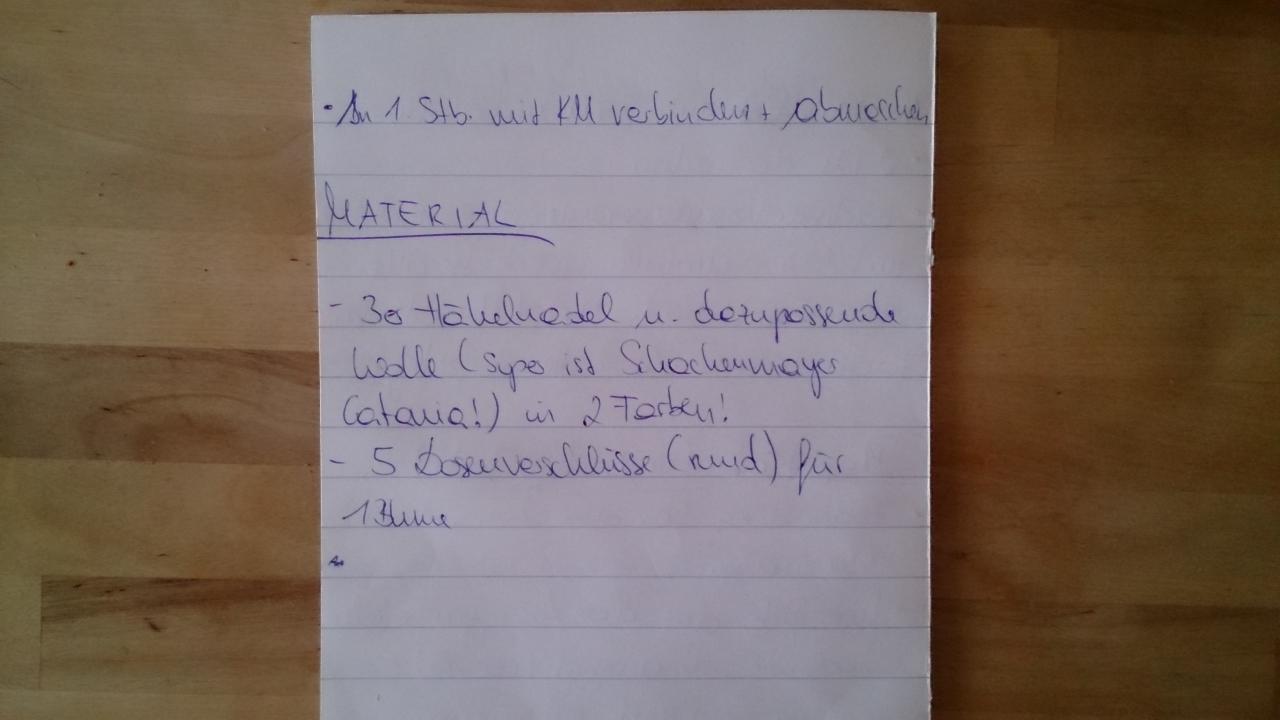 · An 1. Stb. mit KM verbinden +
MATERIAL
- 3er Häkelnadel u. dazupassende
Wolle (super ist Schachenmayer
Catania!) in 2 Farben!
- 5 Dosenverschlüsse (rund) für
1 Blume